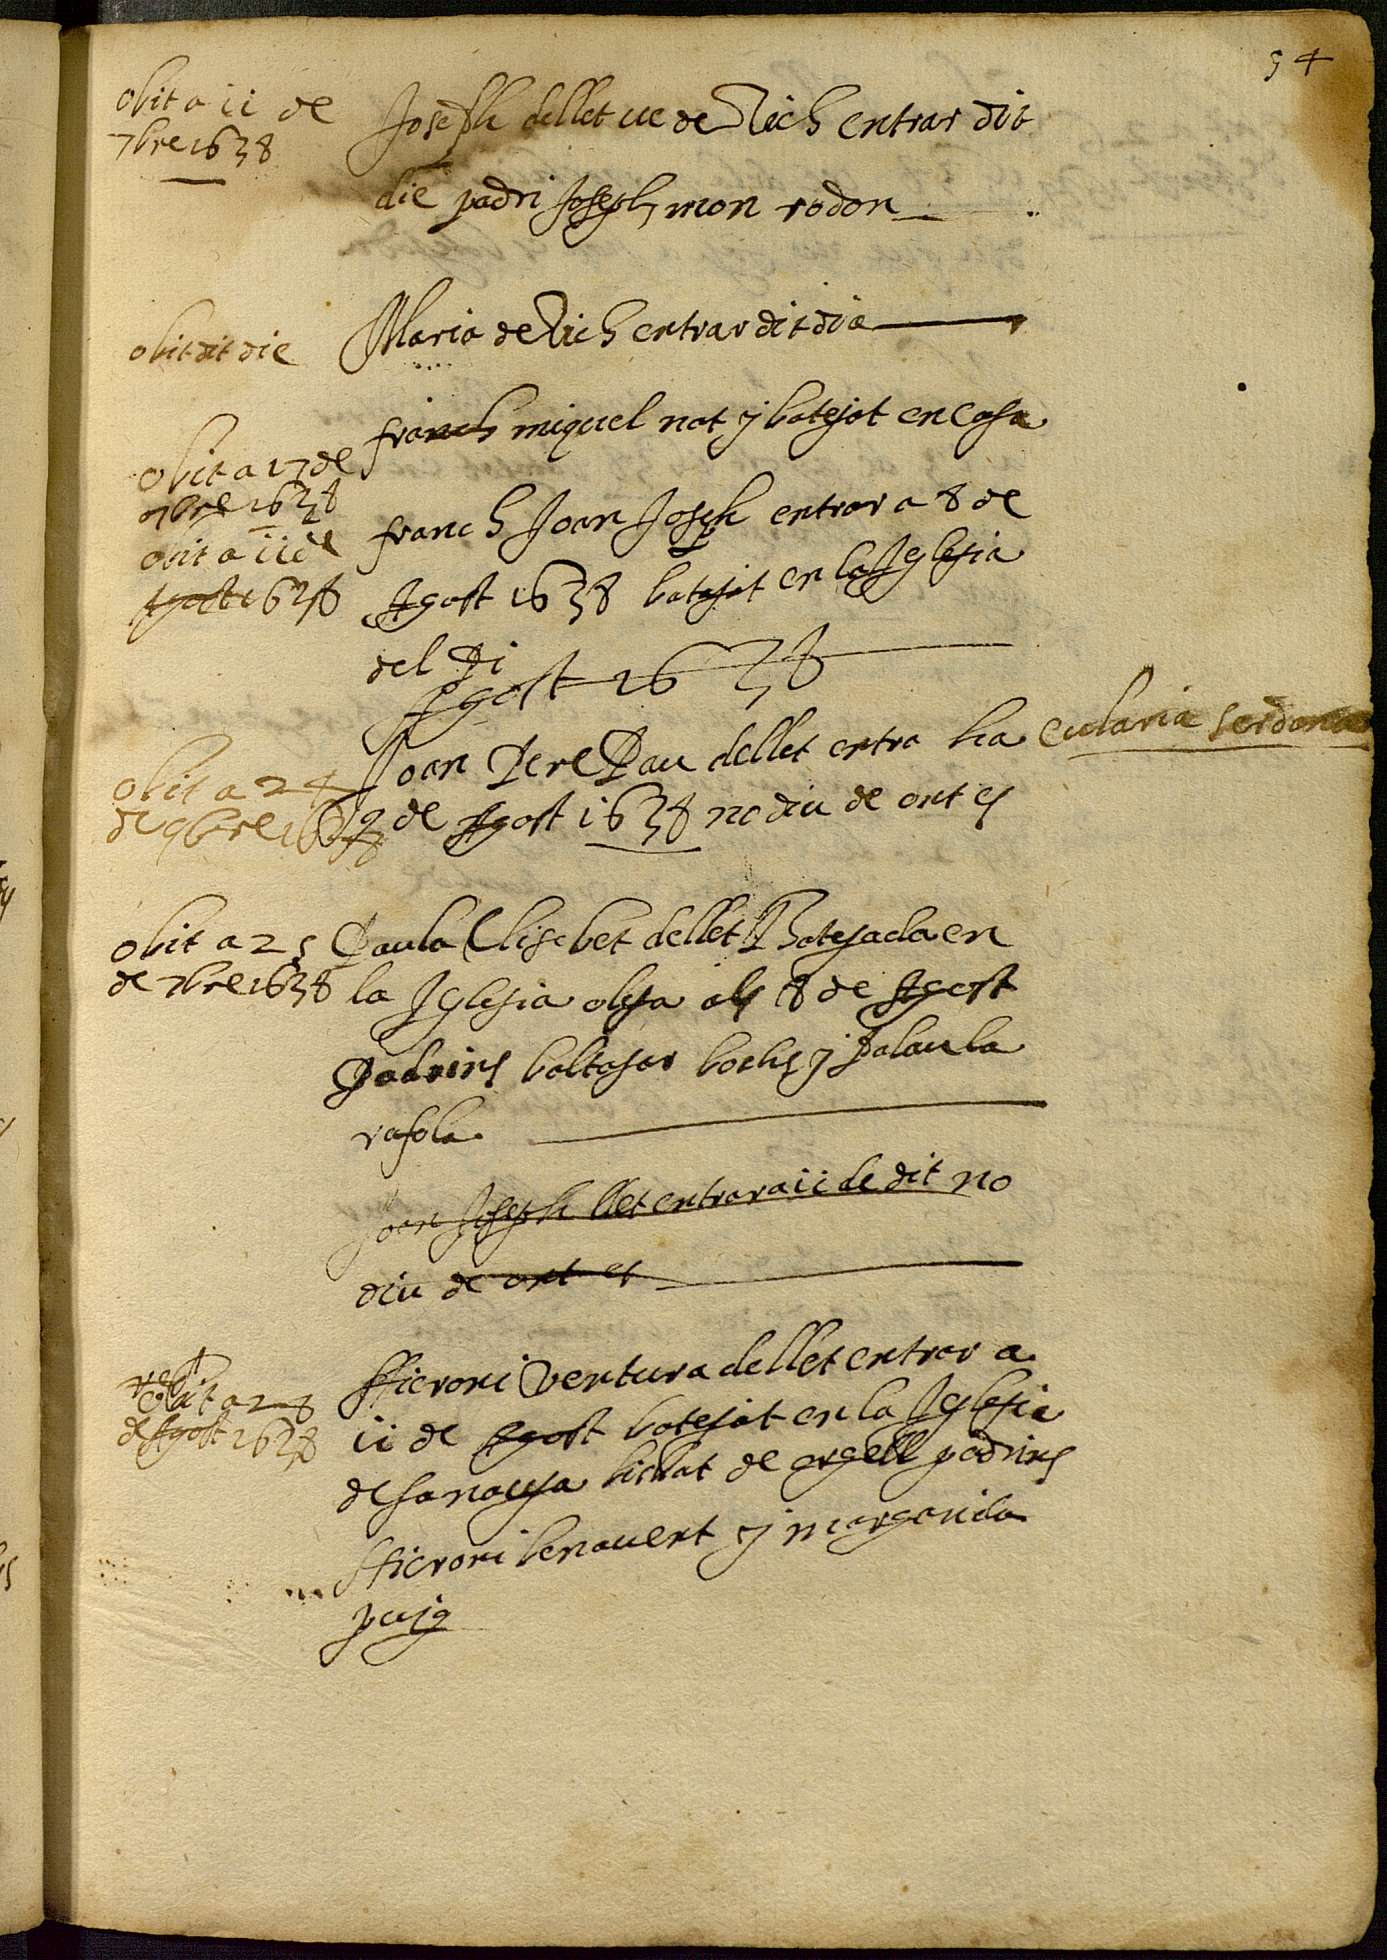 54
obit a ii de
7bre 1638
Joseph dellet ve de Vich entrar dit
die padri Joseph mon rodon
obit dit die
Maria de Vich entrar dit dia
franch miquel nat y batejat en casa
obit a 17 de
7bre 1638
franch Joan Joseph entrar a 8 de
obit a ii de
Agost 1638
Agost 1638 batejat en la Iglesia
del Pi
Agost 1638
Joan Pere Pau dellet entra ha eularia serdana
obit a 24
de 9bre 1638
9 de Agost 1638 no diu de ont es
obit a 25
de 7bre 1638
Paula Elisebet dellet Batejada en
la Iglesia olesa als 8 de Agost
Padrins baltasar bochs y Palaula
rasola
Joan Joseph llet entrar a ii de dit no
diu de ont es
obit a 28
de Agost 1638
Hieroni Ventura dellet entrar a
ii de Agost batejat en la Iglesia
de sanauja bisbat de urgell padrins
Hieroni benavent y margarida
puig